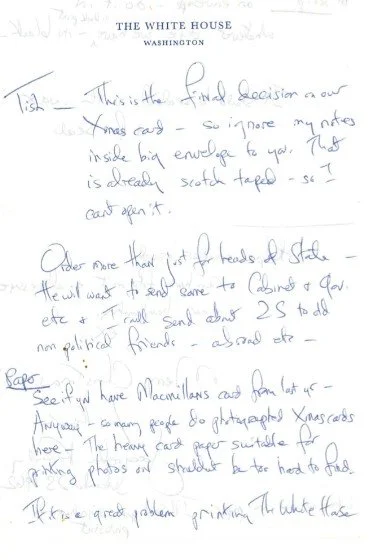 THE WHITE HOUSE
WASHINGTON
Tish — This is the final decision on our
Xmas card — so ignore my notes
inside big envelope to you. That
is already scotch taped — so I
can't open it.
Order more than just for heads of State —
He will want to send some to Cabinet + Gov.
etc + I will send about 25 to old
non political friends — abroad etc —
Paper
See if you have Macmillans card from last yr —
Anyway — so many people do photographed Xmas cards
here — The heavy card paper suitable for
printing photos on shouldn't be too hard to find.
If it is a great problem printing The White House